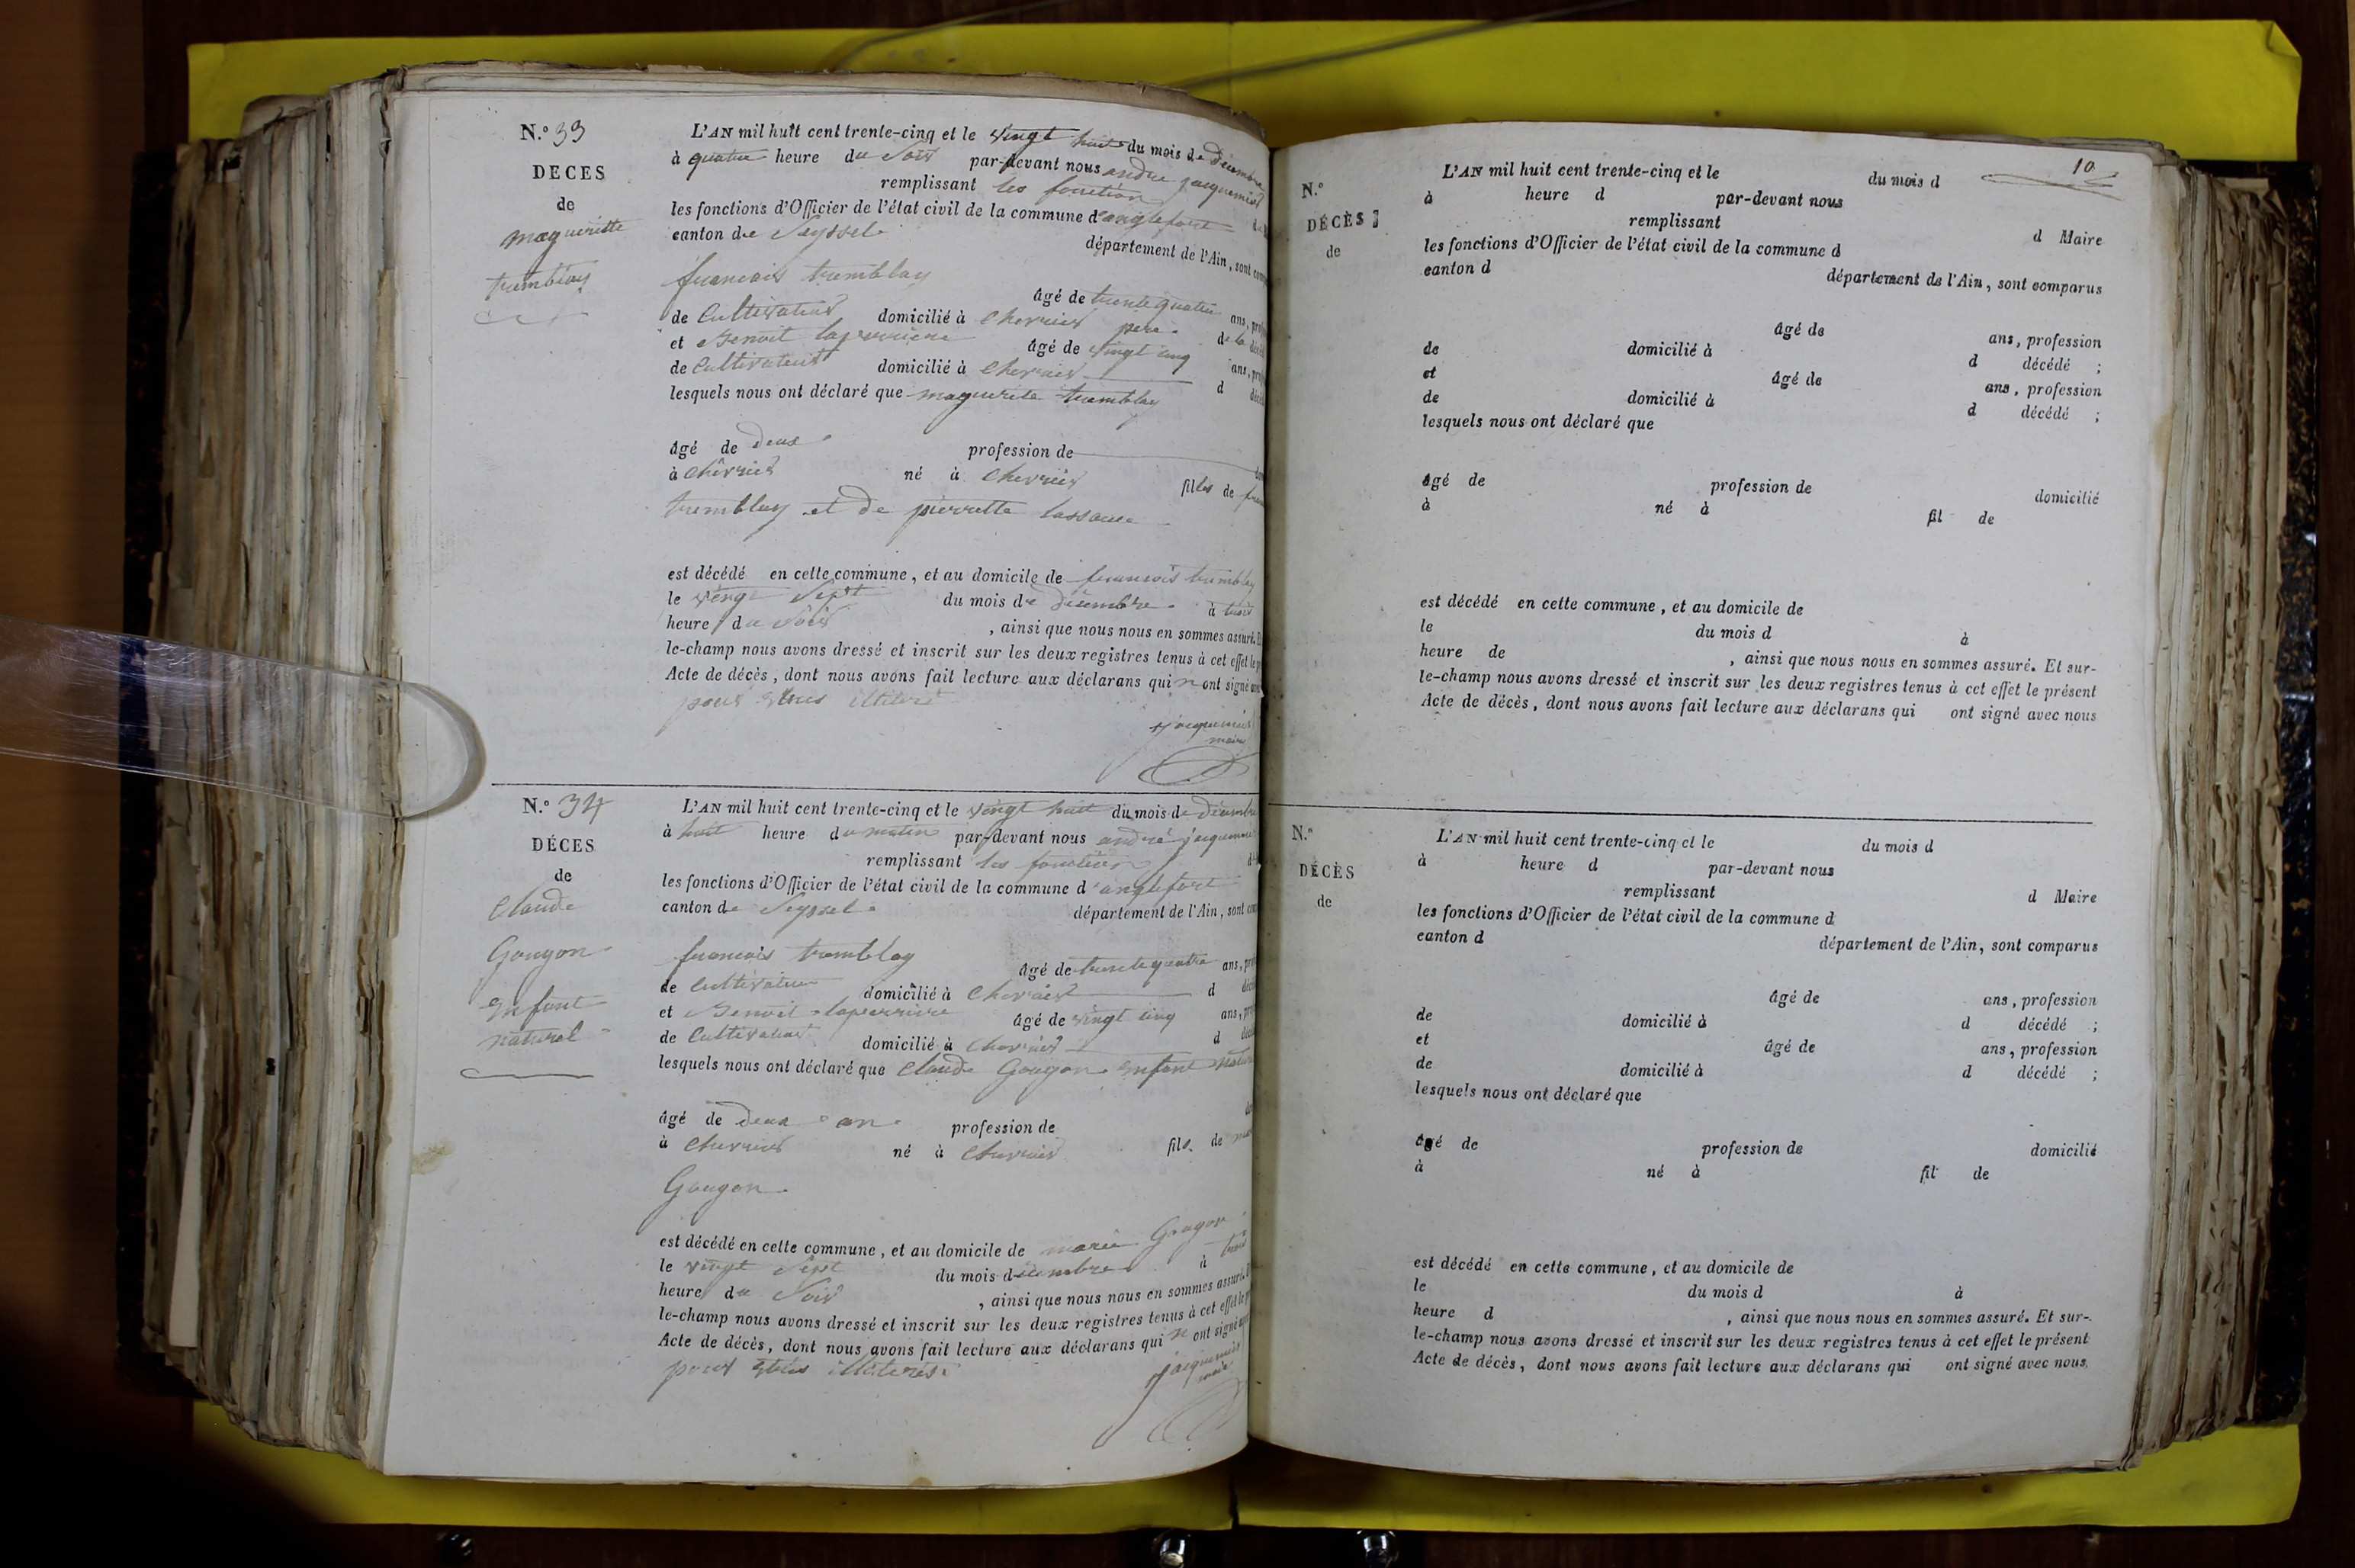 N.° 33
DECES
de
margueritte
tremblay
L'AN mil huit cent trente-cinq et le vingt huit du mois de décembre
à quatre heure du soir par-devant nous andre jacquemier
remplissant les fonction
les fonctions d'Officier de l'état civil de la commune d'anglefort
canton de Seyssel département de l'Ain, sont
francois tremblay
âgé de trente quatre ans,
de Cultivateur domicilié à Chevrier pere de la
et Benoit laperriere âgé de vingt cinq ans,
de Cultivateur domicilié à Chevrier d
lesquels nous ont déclaré que marguerite tremblay
âgé de deux profession de
à Chevrier né à Chevrier filles de
tremblay et de pierrette
est décédé en cette commune, et au domicile de francois tremblay
le vingt sept du mois de décembre à trois
heure du soir , ainsi que nous nous en sommes assuré.
le-champ nous avons dressé et inscrit sur les deux registres tenus à cet effet le
Acte de décès, dont nous avons fait lecture aux déclarans qui n ont signé
pour etres
jacquemier
maire
N.° 34
DÉCES
de
Claude
Gougon
Enfant
naturel
L'AN mil huit cent trente-cinq et le vingt huit du mois de décembre
à huit heure du matin par-devant nous andré jacquemier
remplissant les fonction
les fonctions d'Officier de l'état civil de la commune d'anglefort
canton de Seyssel département de l'Ain, sont
francois tremblay
âgé de trente quatre ans,
de Cultivateur domicilié à Chevrier d
et Benoit laperriere âgé de vingt cinq ans,
de Cultivateur domicilié à Chevrier d
lesquels nous ont déclaré que Claude Gougon Enfant
âgé de deux an profession de
à Chevrier né à Chevrier fils de
Gougon
est décédé en cette commune, et au domicile de marie Gougon
le vingt sept du mois décembre à trois
heure du soir , ainsi que nous nous en sommes assuré.
le-champ nous avons dressé et inscrit sur les deux registres tenus à cet effet le
Acte de décès, dont nous avons fait lecture aux déclarans qui n ont signé
pour etres illiterés
jacquemier
maire
10
N.°
DÉCÈS
de
L'AN mil huit cent trente-cinq et le du mois d
à heure d par-devant nous
remplissant d Maire
les fonctions d'Officier de l'état civil de la commune d
canton d département de l'Ain, sont comparus
âgé de ans, profession
de domicilié à d décédé ;
et âgé de ans, profession
de domicilié à d décédé ;
lesquels nous ont déclaré que
âgé de profession de domicilié
à né à fil de
est décédé en cette commune, et au domicile de
le du mois d à
heure de , ainsi que nous nous en sommes assuré. Et sur-
le-champ nous avons dressé et inscrit sur les deux registres tenus à cet effet le présent
Acte de décès, dont nous avons fait lecture aux déclarans qui ont signé avec nous
N.°
DÉCÈS
de
L'AN mil huit cent trente-cinq et le du mois d
à heure d par-devant nous
remplissant d Maire
les fonctions d'Officier de l'état civil de la commune d
canton d département de l'Ain, sont comparus
âgé de ans, profession
de domicilié à d décédé ;
et âgé de ans, profession
de domicilié à d décédé ;
lesquels nous ont déclaré que
âgé de profession de domicilié
à né à fil de
est décédé en cette commune, et au domicile de
le du mois d à
heure d , ainsi que nous nous en sommes assuré. Et sur-
le-champ nous avons dressé et inscrit sur les deux registres tenus à cet effet le présent
Acte de décès, dont nous avons fait lecture aux déclarans qui ont signé avec nous